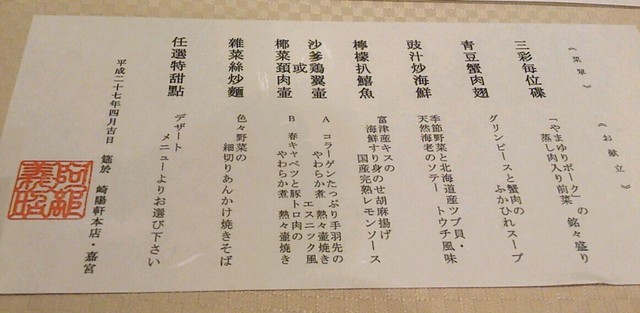 《菜單》
《お献立》
三彩毎位碟
「やまゆりポーク」の銘々盛り
蒸し肉入り前菜
青豆蟹肉翅
グリンピースと蟹肉の
ふかひれスープ
豉汁炒海鮮
季節野菜と北海道産ツブ貝・
天然海老のソテー トウチ風味
檸檬扒鱚魚
富津産キスの
海鮮すり身のせ胡麻揚げ
国産完熟レモンソース
沙爹鶏翼壷
或
椰菜頚肉壷
A コラーゲンたっぷり手羽先の
やわらか煮 熟々壷焼き
エスニック風
B 春キャベツと豚トロ肉の
やわらか煮 熟々壷焼き
雜菜絲炒麵
色々野菜の
細切りあんかけ焼きそば
任選特甜點
デザート
メニューよりお選び下さい
平成二十七年四月吉日 於 崎陽軒本店・嘉宮
阿部義昭